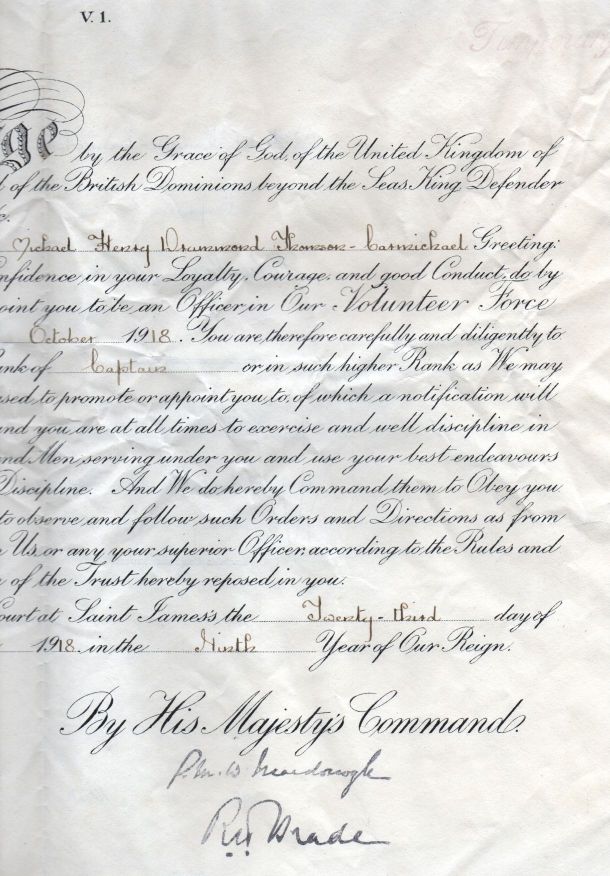 V. 1.
Temporary
ge by the Grace of God, of the United Kingdom of
of the British Dominions beyond the Seas King, Defender
c.
Michael Henry Drummond Thomson-Carmichael Greeting:
nfidence in your Loyalty, Courage, and good Conduct, do by
oint you to be an Officer in Our Volunteer Force
October 1918. You are therefore carefully and diligently to
ank of Captain or in such higher Rank as We may
sed to promote or appoint you to, of which a notification will
nd you are at all times to exercise and well discipline in
nd Men serving under you and use your best endeavours
Discipline. And We do hereby Command them to Obey you
to observe and follow such Orders and Directions as from
Us, or any your superior Officer, according to the Rules and
of the Trust hereby reposed in you.
ourt at Saint James's the Twenty-third day of
1918 in the Ninth Year of Our Reign.
By His Majesty's Command.
R H Brade